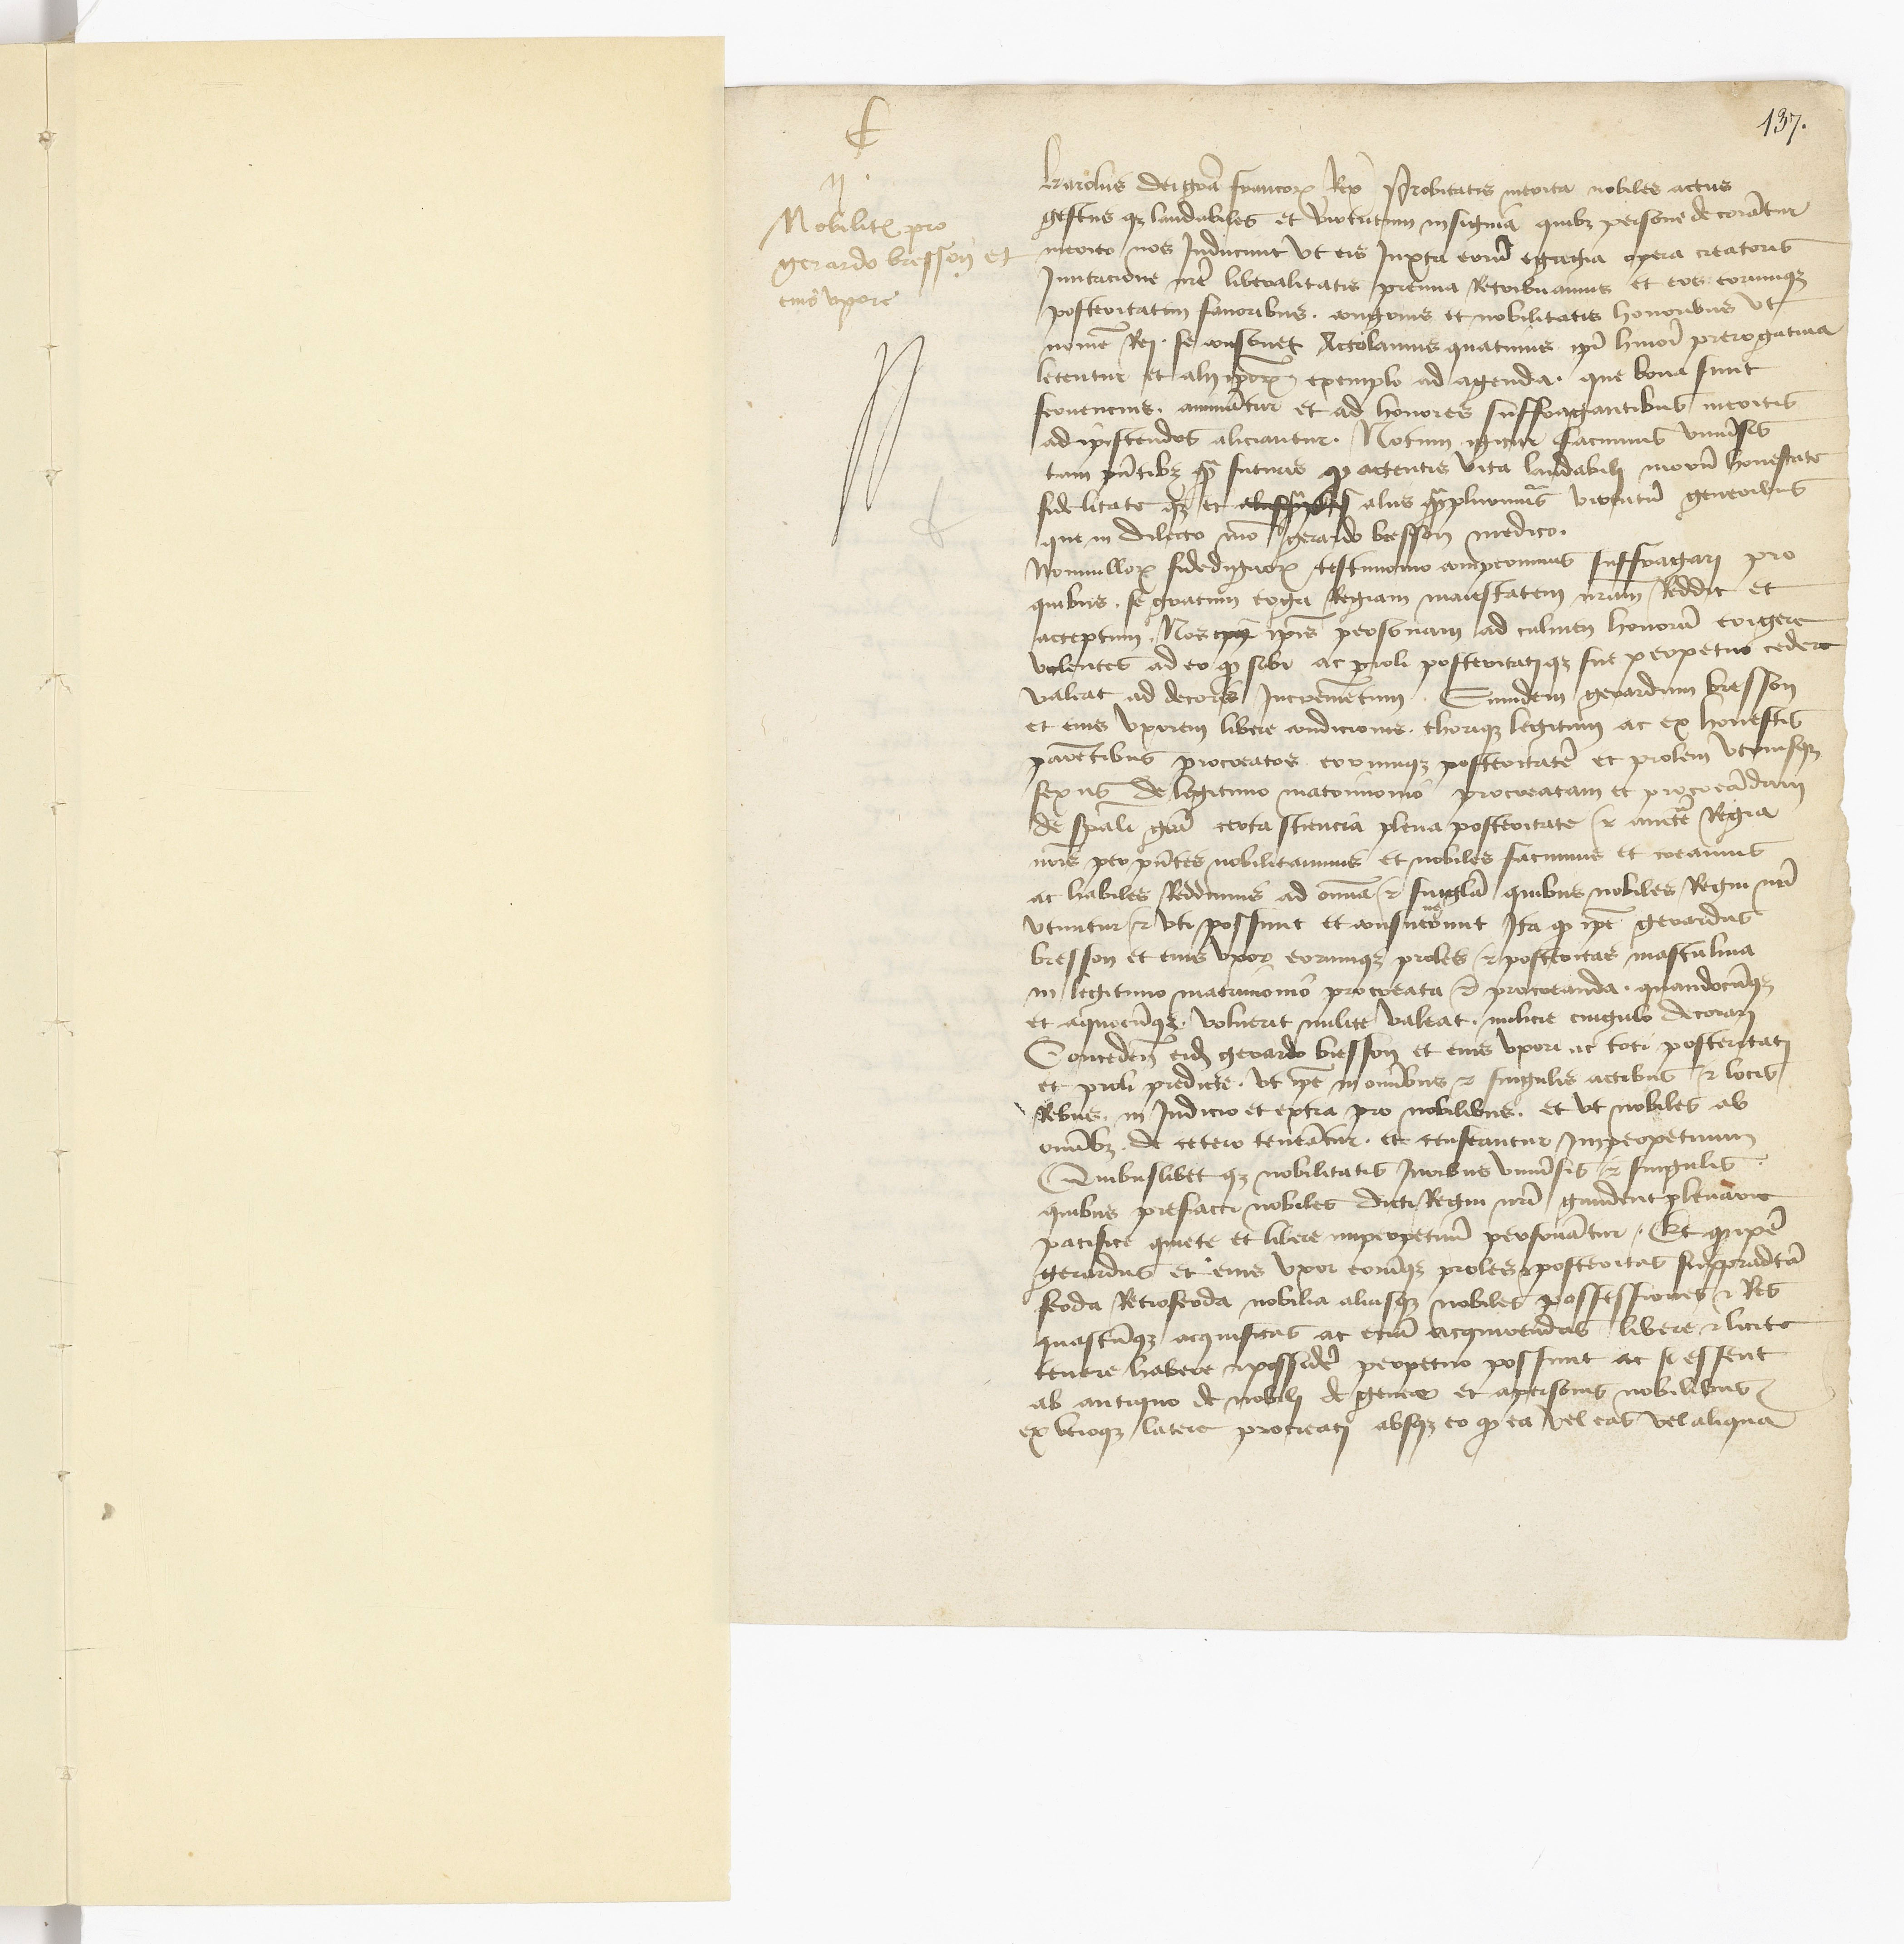 137.
Nobilitas pro
gerardo bresson et
eius uxore
Karolus dei gra francorum Rex Probitatis merita nobiles actus
gestus qz laudabiles et virtutum insignia quibz persone decorantur
merito nos Inducunt ut eis Iuxta eorum egregia opera creatoris
Imitacione nre liberalitatis premia Retribuamus et eos eorumqz
posteritatem favoribus congruis et nobilitatis honoribus ut
nomen Rei se consonet Attolamus quatinus ipi hmoi prerogativa
letentur et alii ipsorum exemplo ad agenda que bona sunt
ferventius animentur et ad honores suffragantibus meritis
adipiscendos aliciantur. Notum igitur facimus universis
tam pntibz qm futuris q attentis vita laudabili morum honestate
fidelitate qz et aliis quamplurimis virtutum generibus
que in dilecto nro gerardo bresson medico.
Nonnullorum fidedignorum testimonio comperimus suffragari pro
quibus se gratum erga Regiam maiestatem nram Reddit et
acceptum. Nos ipius personam ad culmen honorum erigere
volentes adeo q sibi ac proli posteritatiqz sue perpetuo cedere
valeat ad decoris Incrementum. Eumdem gerardum bresson
et eius uxorem libere condicionis thorique legitimi ac ex honestis
parentibus procreatos eorumqz posteritatem et prolem utriusqz
sexus de legitimo matrimonio procreatam et procreandam
de spali gra certa sciencia plena potestate et aucte Regia
nris per pntes nobilitamus et nobiles facimus et creamus
ac habiles Reddimus ad omnia et singula quibus nobiles Regni nri
utuntur et uti possunt et consueverunt Ita q ipe gerardus
bresson et eius uxor eorumqz proles et posteritas masculina
in legitimo matrimonio procreata et procreanda quandocunqz
et a quocunqz voluerit milite valeat milicie cingulo decorari
Concedentes eidem gerardo bresson et eius uxori ac toti posteritati
et proli predicte ut ipe in omnibus et singulis actibus et locis
Rebus in Iudicio et extra pro nobilibus et ut nobiles ab
omnibz de cetero teneantur et censeantur Imperpetuum
Quibuslibet qz nobilitatis Iuribus universis et singulis
quibus prefacti nobiles dicti Regni nri gaudent plenarie
pacifice quiete et libere imperpetuum perfruantur. Et q ipe
gerardus et eius uxor eorumqz proles et posteritas supradicta
feoda Retrofeoda nobilia aliasqz nobiles possessiones et Res
quascunqz acquisitas ac eciam acquirendas libere et licite
tenere habere et possidere perpetuo possunt ac si essent
ab antiquo de nobili de genere et a personis nobilibus
ex utroqz latere procreati absqz eo q ea vel eas vel aliqua